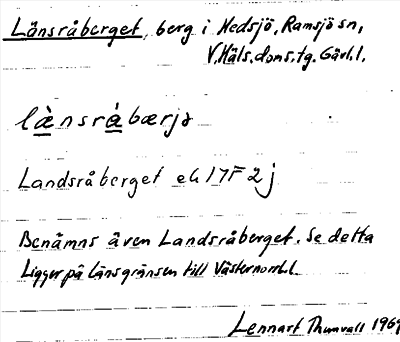 Länsråberget, berg i Hedsjö, Ramsjö sn,
V. Häls. doms. tg. Gävl. l.
lànsràbærjə
Landsråberget ek 17F 2j
Benämns även Landsråberget. Se detta
Ligger på länsgränsen till Västernorrl.l.
Lennart Thunvall 1969